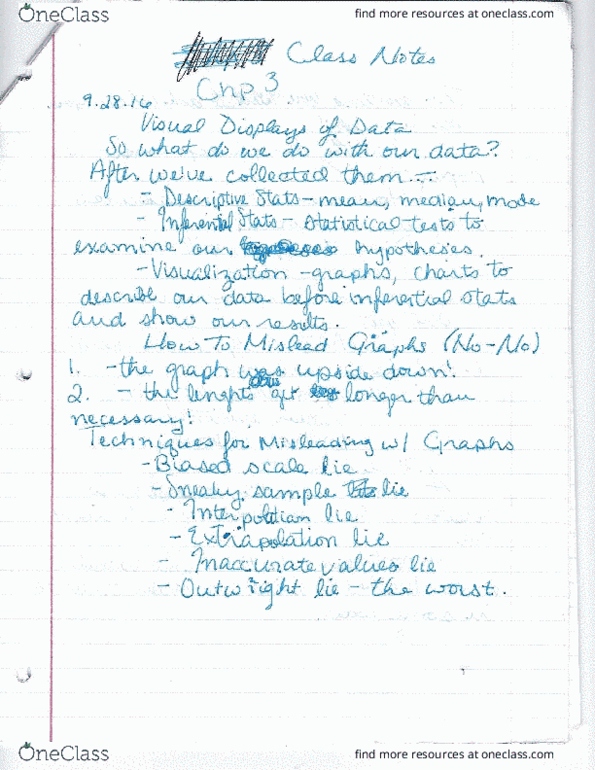 OneClass
find more resources at oneclass.com
Class Notes
Chp 3
9.28.16
Visual Displays of Data
So what do we do with our data?
After we've collected them —
- Descriptive Stats - mean, median, mode
- Inferential Stats - statistical tests to
examine our hypotheses.
- Visualization - graphs, charts to
describe our data before inferential stats
and show our results.
How To Mislead Graphs (No-No)
1. - the graph was upside down!
2. - the lenghts get longer than
necessary!
Techniques for Misleading w/ Graphs
- Biased scale lie
- Sneaky sample lie
- Interpolation lie
- Extrapolation lie
- Inaccurate values lie
- Outwright lie - the worst.
OneClass
find more resources at oneclass.com